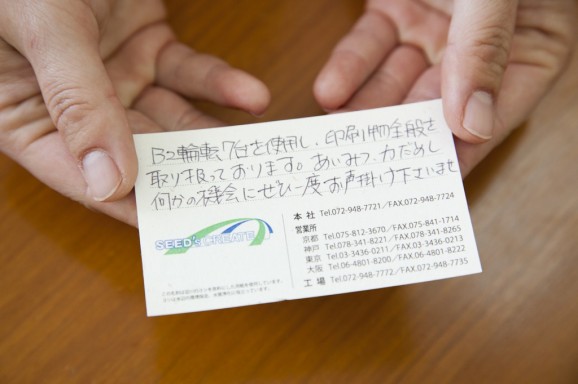 B2輪転7台を使用し、印刷物全般を
取り扱っております。あいみつ、力だめし
何かの機会にぜひ一度お声掛け下さいませ
SEED's CREATE
本 社 Tel.072-948-7721/FAX.072-948-7724
営業所
京都 Tel.075-812-3670/FAX.075-841-1714
神戸 Tel.078-341-8221/FAX.078-341-8265
東京 Tel.03-3436-0211/FAX.03-3436-0213
大阪 Tel.06-4801-8200/FAX.06-4801-8222
工 場 Tel.072-948-7772/FAX.072-948-7735